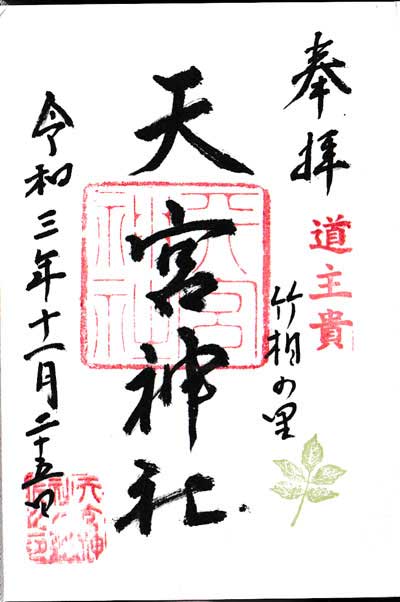 奉拝
道主貴
竹相の里
天宮神社
令和三年十一月二十五日